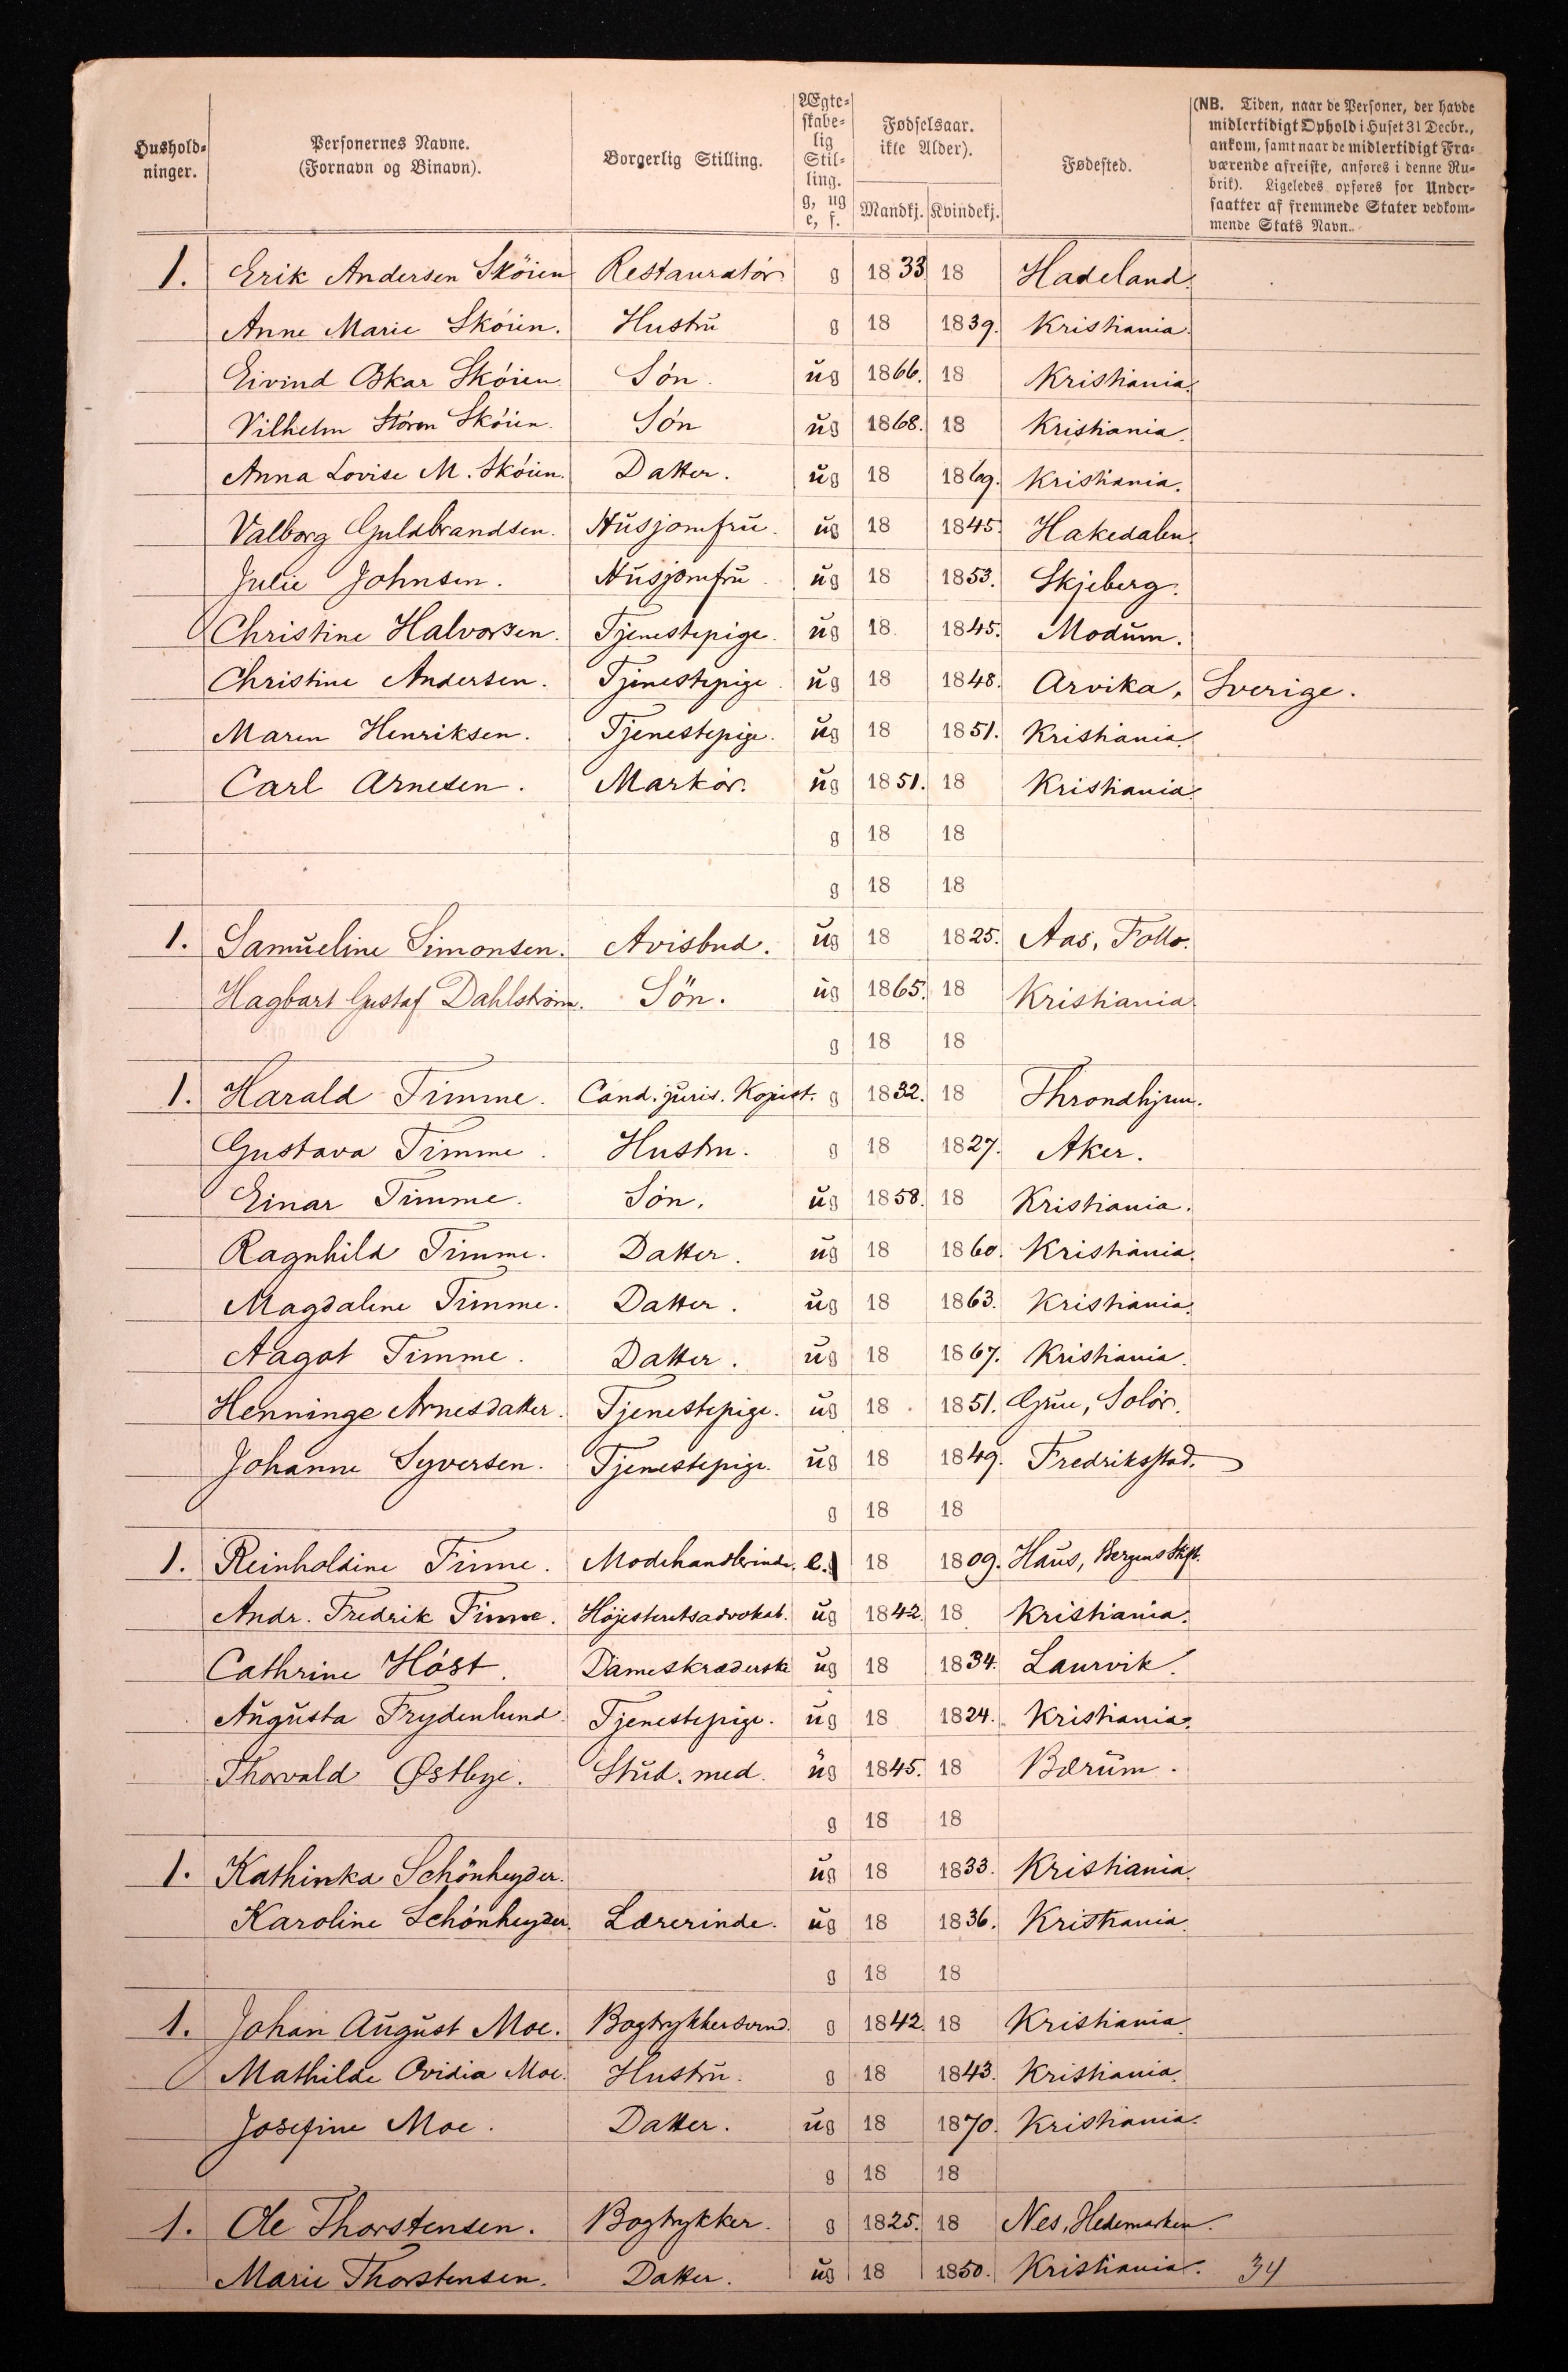 Hushold-
ninger.
Personernes Navne.
(Fornavn og Binavn).
Borgerlig Stilling.
Ægte-
skabe-
lig
Stil-
ling.
g, ug
e, f.
Fødselsaar.
ikke Alder).
Mandkj. Kvindekj.
Fødested.
(NB. Tiden, naar de Personer, der havde
midlertidigt Ophold i Huset 31 Decbr.,
ankom, samt naar de midlertidigt Fra-
værende afreiste, anføres i denne Ru-
brik). Ligeledes opføres for Under-
saatter af fremmede Stater vedkom-
mende Stats Navn.
1. Erik Andersen Sköien Restauratör g 1833 18 Hadeland.
Anne Marie Sköien. Hustru g 18 1839. Kristiania.
Eivind Oskar Sköien Sön. ug 1866. 18 Kristiania.
Vilhelm Stören Sköien. Sön ug 1868. 18 Kristiania.
Anna Lovise M. Sköien. Datter. ug 18 1869. Kristiania.
Valborg Guldbrandsen. Husjomfru. ug 18 1845. Hakedalen.
Julie Johnsen. Husjomfru. ug 18 1853. Skjeberg.
Christine Halvorsen. Tjenestepige. ug 18 1845. Modum.
Christine Andersen. Tjenestepige. ug 18 1848. Arvika, Sverige.
Maren Henriksen. Tjenestepige. ug 18 1851. Kristiania.
Carl Arnesen. Markör. ug 1851. 18 Kristiania.
g 18 18
g 18 18
1. Samueline Simonsen. Avisbud. ug 18 1825. Aas, Follo.
Hagbart Gustaf Dahlström. Sön. ug 1865. 18 Kristiania.
g 18 18
1. Harald Timme. Cand. juris. Kopist. g 1832. 18 Throndhjem.
Gustava Timme. Hustru. g 18 1827. Aker.
Einar Timme. Sön. ug 1858. 18 Kristiania.
Ragnhild Timme. Datter. ug 18 1860. Kristiania.
Magdalene Timme. Datter. ug 18 1863. Kristiania.
Aagot Timme. Datter. ug 18 1867. Kristiania.
Henninge Arnesdatter. Tjenestepige. ug 18 1851. Grue, Solör.
Johanne Syversen. Tjenestepige. ug 18 1849. Fredriksstad.
g 18 18
1. Reinholdine Finne. Modehandlerinde. e. 18 1809. Haus, Bergens Stift.
Andr. Fredrik Finne. Höjesteretsadvokat. ug 1842. 18 Kristiania.
Cathrine Höst. Dameskræderske ug 18 1834. Laurvik.
Augusta Frydenlund. Tjenestepige. ug 18 1824. Kristiania.
Thorvald Østbye. Stud. med. ug 1845. 18 Bærum.
g 18 18
1. Kathinka Schönheyder. ug 18 1833. Kristiania.
Karoline Schönheyder. Lærerinde. ug 18 1836. Kristiania.
g 18 18
1. Johan August Moe. Bogtrykkersvend. g 1842. 18 Kristiania.
Mathilde Ovidia Moe. Hustru. g 18 1843. Kristiania.
Josefine Moe. Datter. ug 18 1870. Kristiania.
g 18 18
1. Ole Thorstensen. Bogtrykker. g 1825. 18 Nes, Hedemarken.
Marie Thorstensen. Datter. ug 18 1850. Kristiania. 34